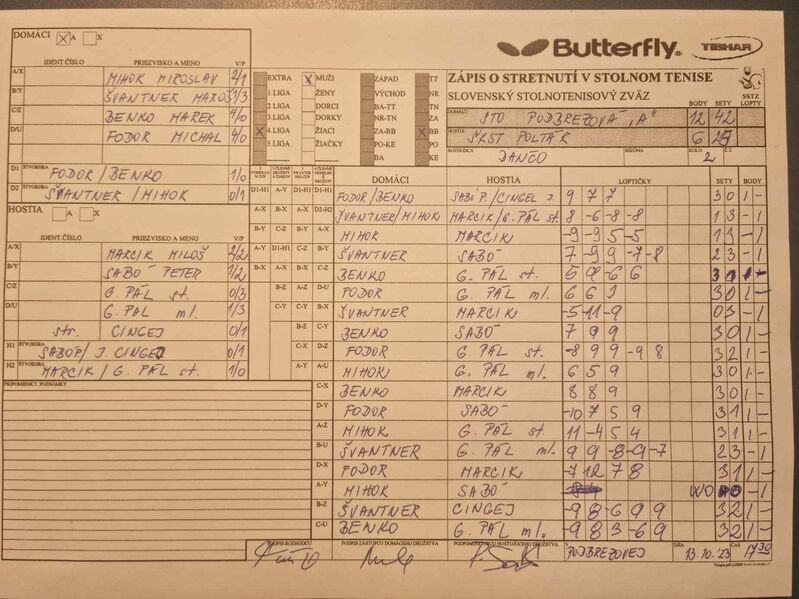 DOMÁCI X A X
IDENT.ČÍSLO PRIEZVISKO A MENO V/P
A/X MIHOK MIROSLAV 2/1
B/Y ŠVANTNER MAROŠ 1/3
C/Z BENKO MAREK 4/0
D/U FODOR MICHAL 4/0
D1 ŠTVORHRA FODOR/BENKO 1/0
D2 ŠTVORHRA ŠVANTNER/MIHOK 0/1
HOSTIA A X
IDENT.ČÍSLO PRIEZVISKO A MENO V/P
A/X MARCIK MILOŠ 2/2
B/Y SABÓ PETER 1/2
C/Z G. PÁL st. 0/3
D/U G. PÁL ml. 1/3
str. CINGEJ 0/1
H1 ŠTVORHRA SABÓP/ J. CINGEJ 0/1
H2 ŠTVORHRA MARCIK/G. PÁL st. 1/0
PRIPOMIENKY, POZNÁMKY
EXTRA X MUŽI ZÁPAD TT
1.LIGA ŽENY VÝCHOD NR
2.LIGA DORCI BA-TT TN
3.LIGA DORKY NR-TN ZA
X 4.LIGA ŽIACI ZA-BB X BB
5.LIGA ŽIAČKY PO-KE PO
BA KE
Butterfly TIBHAR
ZÁPIS O STRETNUTÍ V STOLNOM TENISE
SLOVENSKÝ STOLNOTENISOVÝ ZVÄZ SSTZ
BODY SETY LOPTY
DOMÁCI STO PODBREZOVÁ "A" 12 42
HOSTIA ŠKST POLTÁR 6 25
ROZHODCA DANČO SEZÓNA KOLO 2
DOMÁCI HOSTIA LOPTIČKY SETY BODY
D1-H1 A-Y D1-H1 D1-H1 FODOR/BENKO SABÓ P./CINGEL J. 9 7 7 3 0 1 -
A-X B-X A-X D2-H2 ŠVANTNER/MIHOK MARCIK/G. PÁL st. 8 -6 -8 -8 1 3 - 1
B-Y C-Z B-Y A-X MIHOK MARCIK -9 -9 5 -5 1 3 - 1
A-Y D1-H1 C-Z B-Y ŠVANTNER SABÓ 7 -9 9 -7 -8 2 3 - 1
B-X A-X B-X C-Z BENKO G. PÁL st. 5 -6 6 3 1 1 -
B-Z A-Z D-U FODOR G. PÁL ml. 6 6 3 0 1 -
C-Y C-Y B-X ŠVANTNER MARCIK -5 -11 -9 0 3 - 1
B-Z C-Y BENKO SABÓ 7 9 9 3 0 1 -
C-X D-Z FODOR G. PÁL st. -8 9 9 -9 8 3 2 1 -
A-Y A-U MIHOK G. PÁL ml. 6 5 9 3 0 1 -
C-X BENKO MARCIK 8 8 9 3 0 1 -
D-Y FODOR SABÓ -10 7 5 9 3 1 1 -
A-Z MIHOK G. PÁL st. 11 -4 5 4 3 1 1 -
B-U ŠVANTNER G. PÁL ml. 9 9 -8 -9 -7 2 3 - 1
D-X FODOR MARCIK -7 12 7 8 3 1 1 -
A-Y MIHOK SABÓ WO - 1
B-Z ŠVANTNER CINGEJ -9 8 -6 9 9 3 2 1 -
C-U BENKO G. PÁL ml. -9 8 3 -6 9 3 2 1 -
PODPIS ROZHODCU PODPIS ZÁSTUPCU DOMÁCEHO DRUŽSTVA PODPIS ZÁSTUPCU HOSŤUJÚCEHO DRUŽSTVA V PODBREZOVEJ DŇA 13.10.23 ČAS 17 30